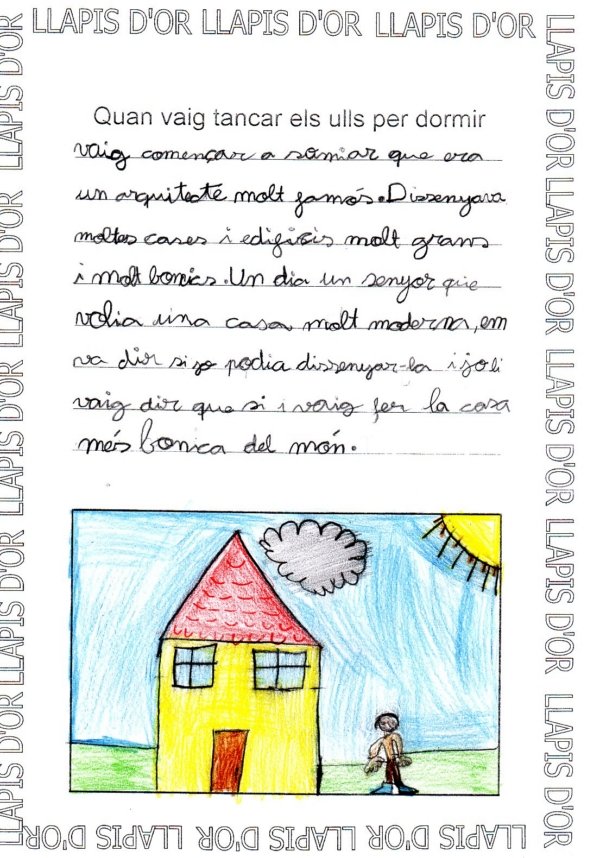 LLAPIS D'OR LLAPIS D'OR LLAPIS D'OR
Quan vaig tancar els ulls per dormir
vaig començar a somiar que era
un arquitecte molt famós. Dissenyava
moltes cases i edificis molt grans
i molt bonics. Un dia un senyor que
volia una casa molt moderna, em
va dir si jo podia dissenyar-la i jo li
vaig dir que si i vaig fer la casa
més bonica del món.
LLAPIS D'OR LLAPIS D'OR LLAPIS D'OR LLAPIS D'OR LLAPIS D'OR
LLAPIS D'OR LLAPIS D'OR LLAPIS D'OR LLAPIS D'OR LLAPIS D'OR
LLAPIS D'OR LLAPIS D'OR LLAPIS D'OR